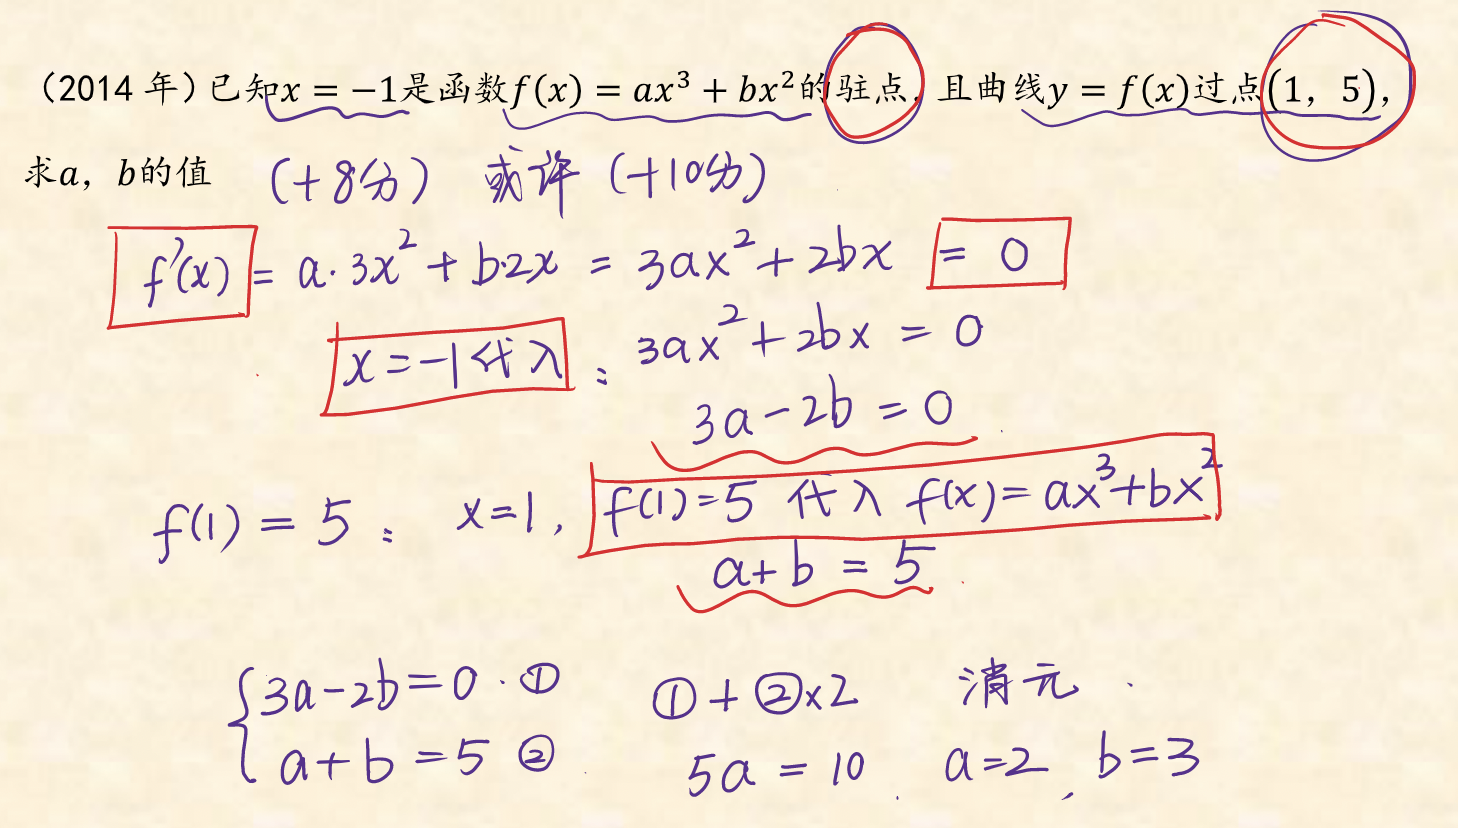 （2014 年）已知x = −1是函数f(x) = ax³ + bx²的驻点，且曲线y = f(x)过点(1，5)，
求a，b的值
(+8分) 或许 (+10分)
f'(x) = a·3x² + b·2x = 3ax² + 2bx = 0
x=-1代入：3ax² + 2bx = 0
3a-2b = 0
f(1) = 5： x=1, f(1)=5 代入 f(x)=ax³+bx²
a+b = 5
{3a-2b=0 · ①  ①+②x2  消元
a+b=5 ②  5a = 10  a=2, b=3